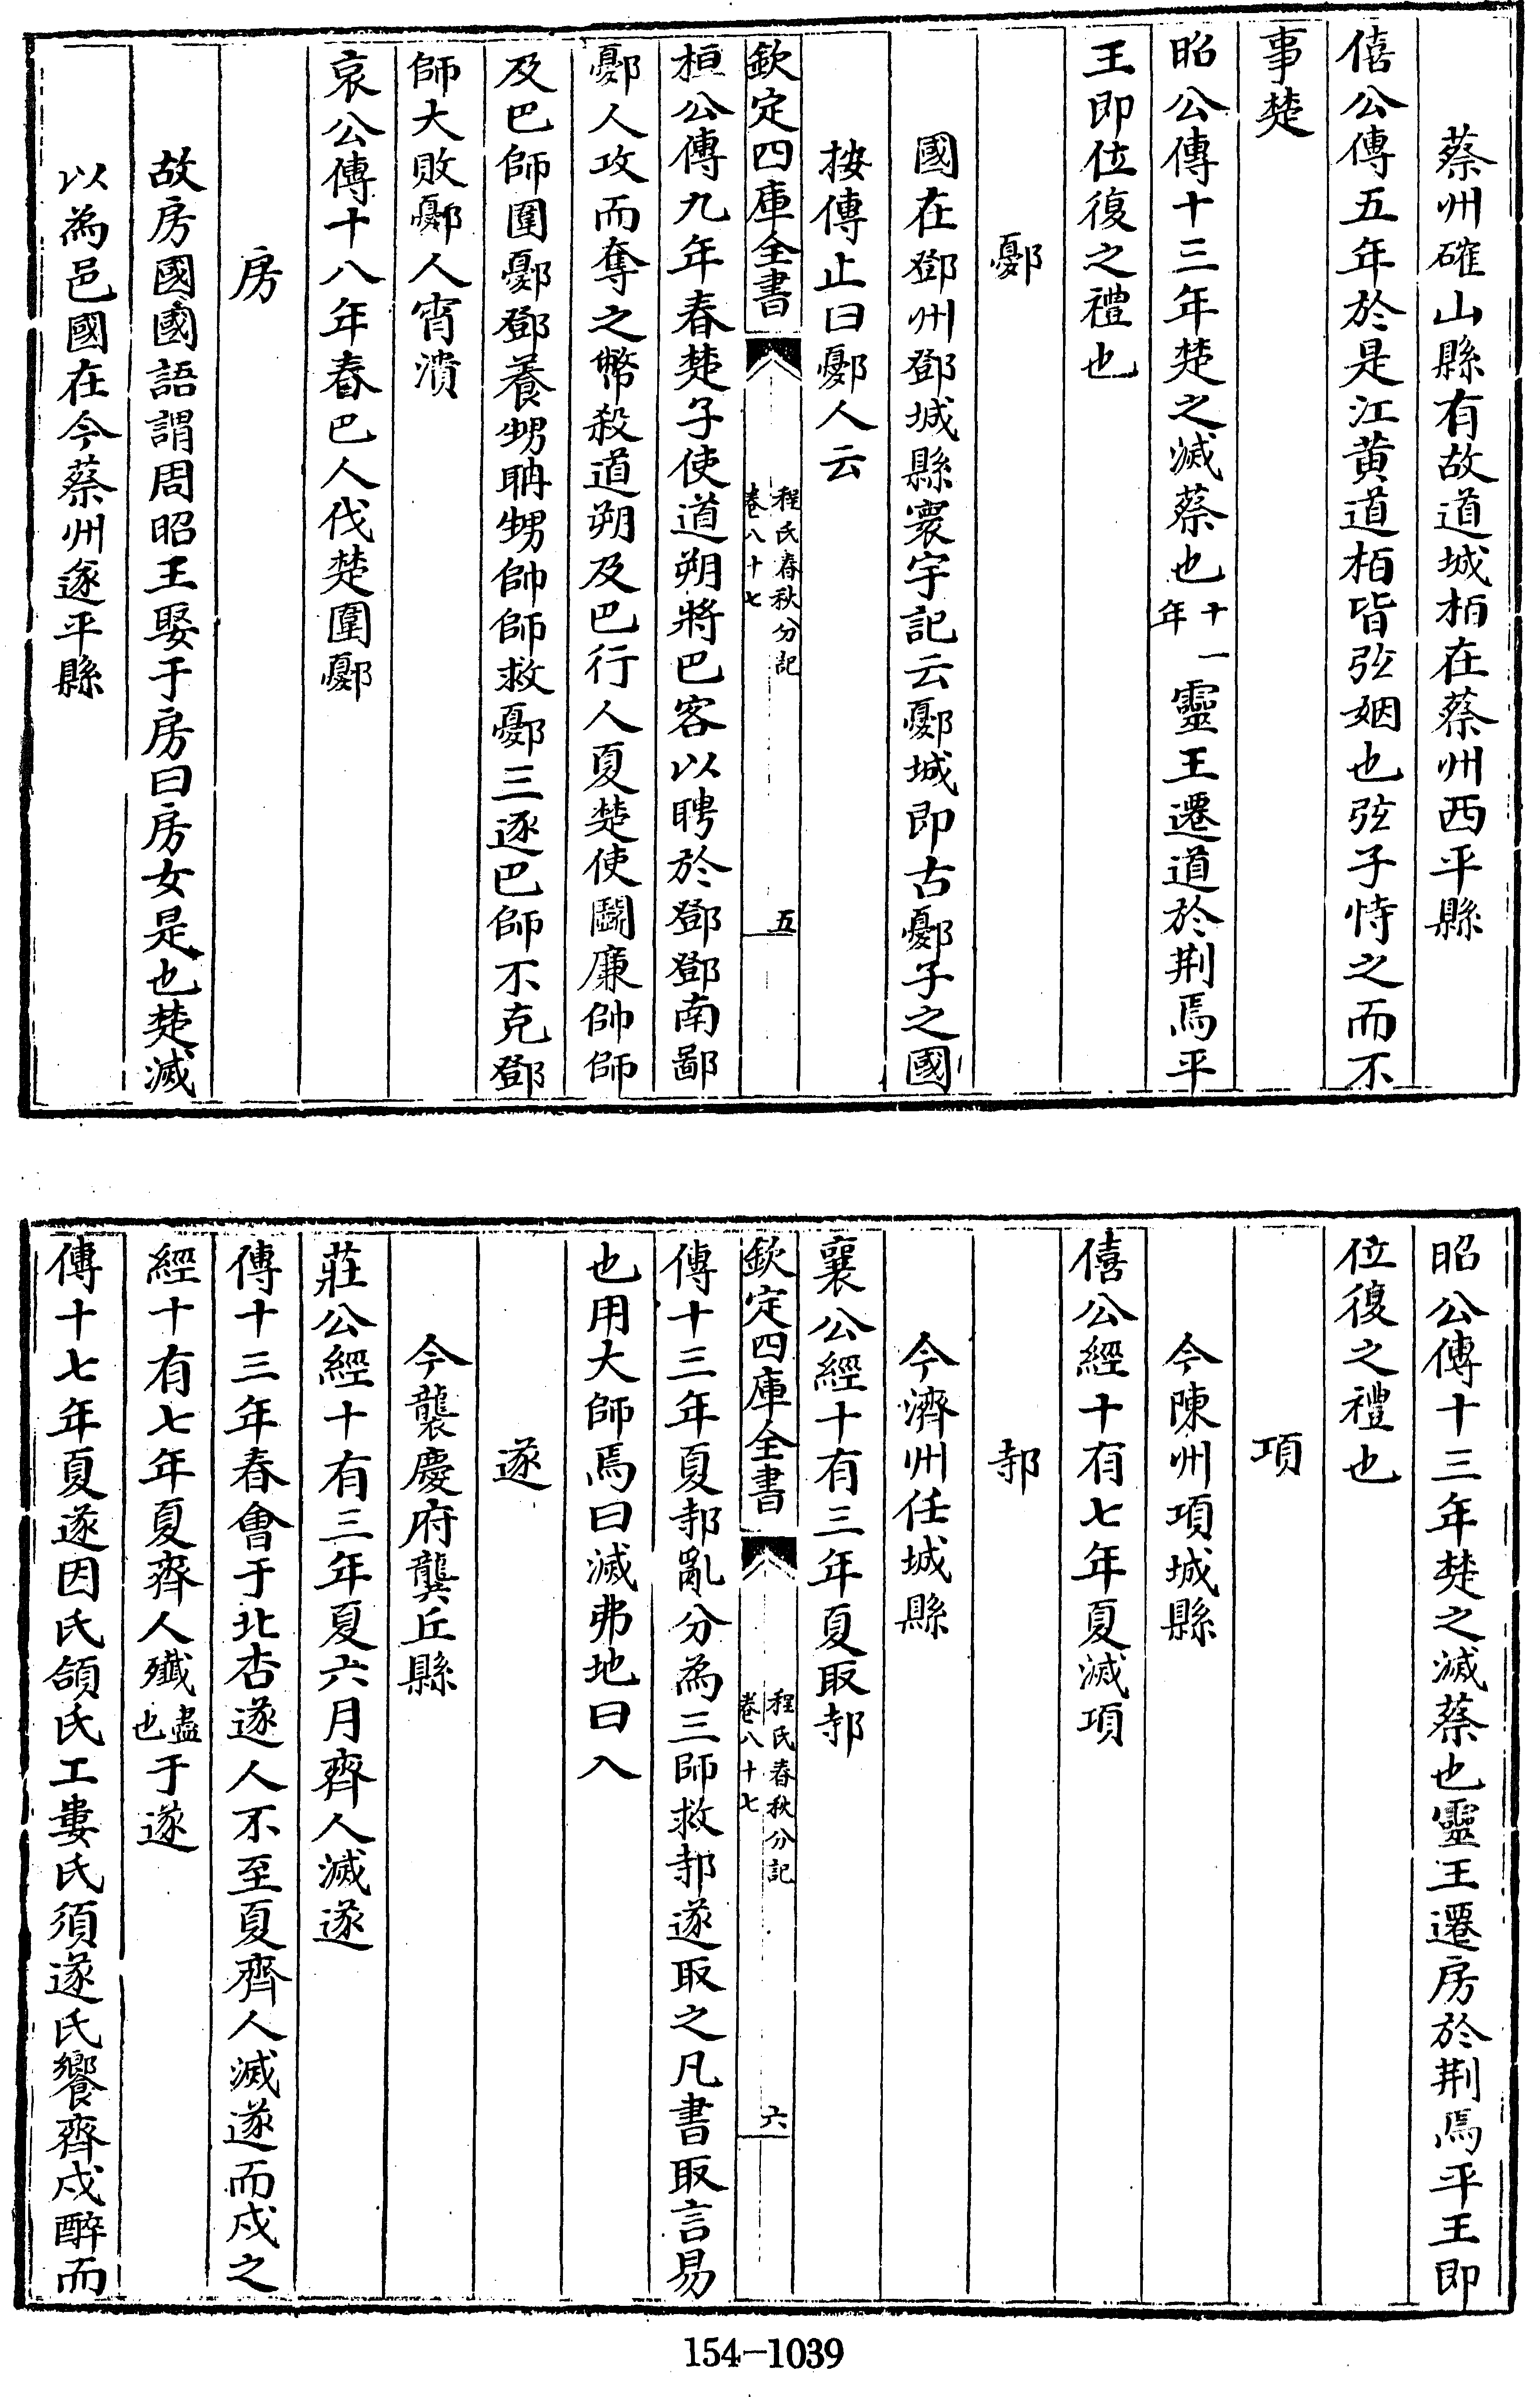 蔡州確山縣有故道城柏在蔡州西平縣
僖公傳五年於是江黄道栢皆弦姻也弦子恃之而不
事楚
昭公傳十三年楚之滅蔡也十一年靈王遷道於荆焉平
王即位復之禮也
鄾
國在鄧州鄧城縣寰宇記云鄾城即古鄾子之國
按傳止曰鄾人云
欽定四庫全書
程氏春秋分記
卷八十七
五
桓公傳九年春楚子使道朔將巴客以聘於鄧鄧南鄙
鄾人攻而奪之幣殺道朔及巴行人夏楚使鬭廉帥師
及巴師圍鄾鄧養甥聃甥帥師救鄾三逐巴師不克鄧
師大敗鄾人宵潰
哀公傳十八年春巴人伐楚圍鄾
房
故房國國語謂周昭王娶于房曰房女是也楚滅
以為邑國在今蔡州遂平縣
昭公傳十三年楚之滅蔡也靈王遷房於荆焉平王即
位復之禮也
項
今陳州項城縣
僖公經十有七年夏滅項
邿
今濟州任城縣
襄公經十有三年夏取邿
欽定四庫全書
程氏春秋分記
卷八十七
六
傳十三年夏邿亂分為三師救邿遂取之凡書取言易
也用大師焉曰滅弗地曰入
遂
今襲慶府龔丘縣
莊公經十有三年夏六月齊人滅遂
傳十三年春會于北杏遂人不至夏齊人滅遂而戍之
經十有七年夏齊人殱盡也于遂
傳十七年夏遂因氏頜氏工婁氏須遂氏饗齊戍醉而
154-1039